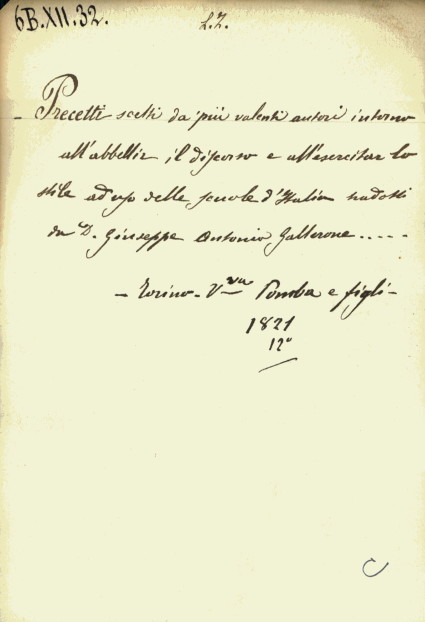 6B.XII.32.
L.I.
- Precetti scelti da più valenti autori intorno
all'abbellir il discorso e all'esercitar lo
stile ad uso delle scuole d'Italia tradotti
da D. Giuseppe Antonio Gallerone.....
- Torino - Vva Pomba e figli -
1821
12°
C